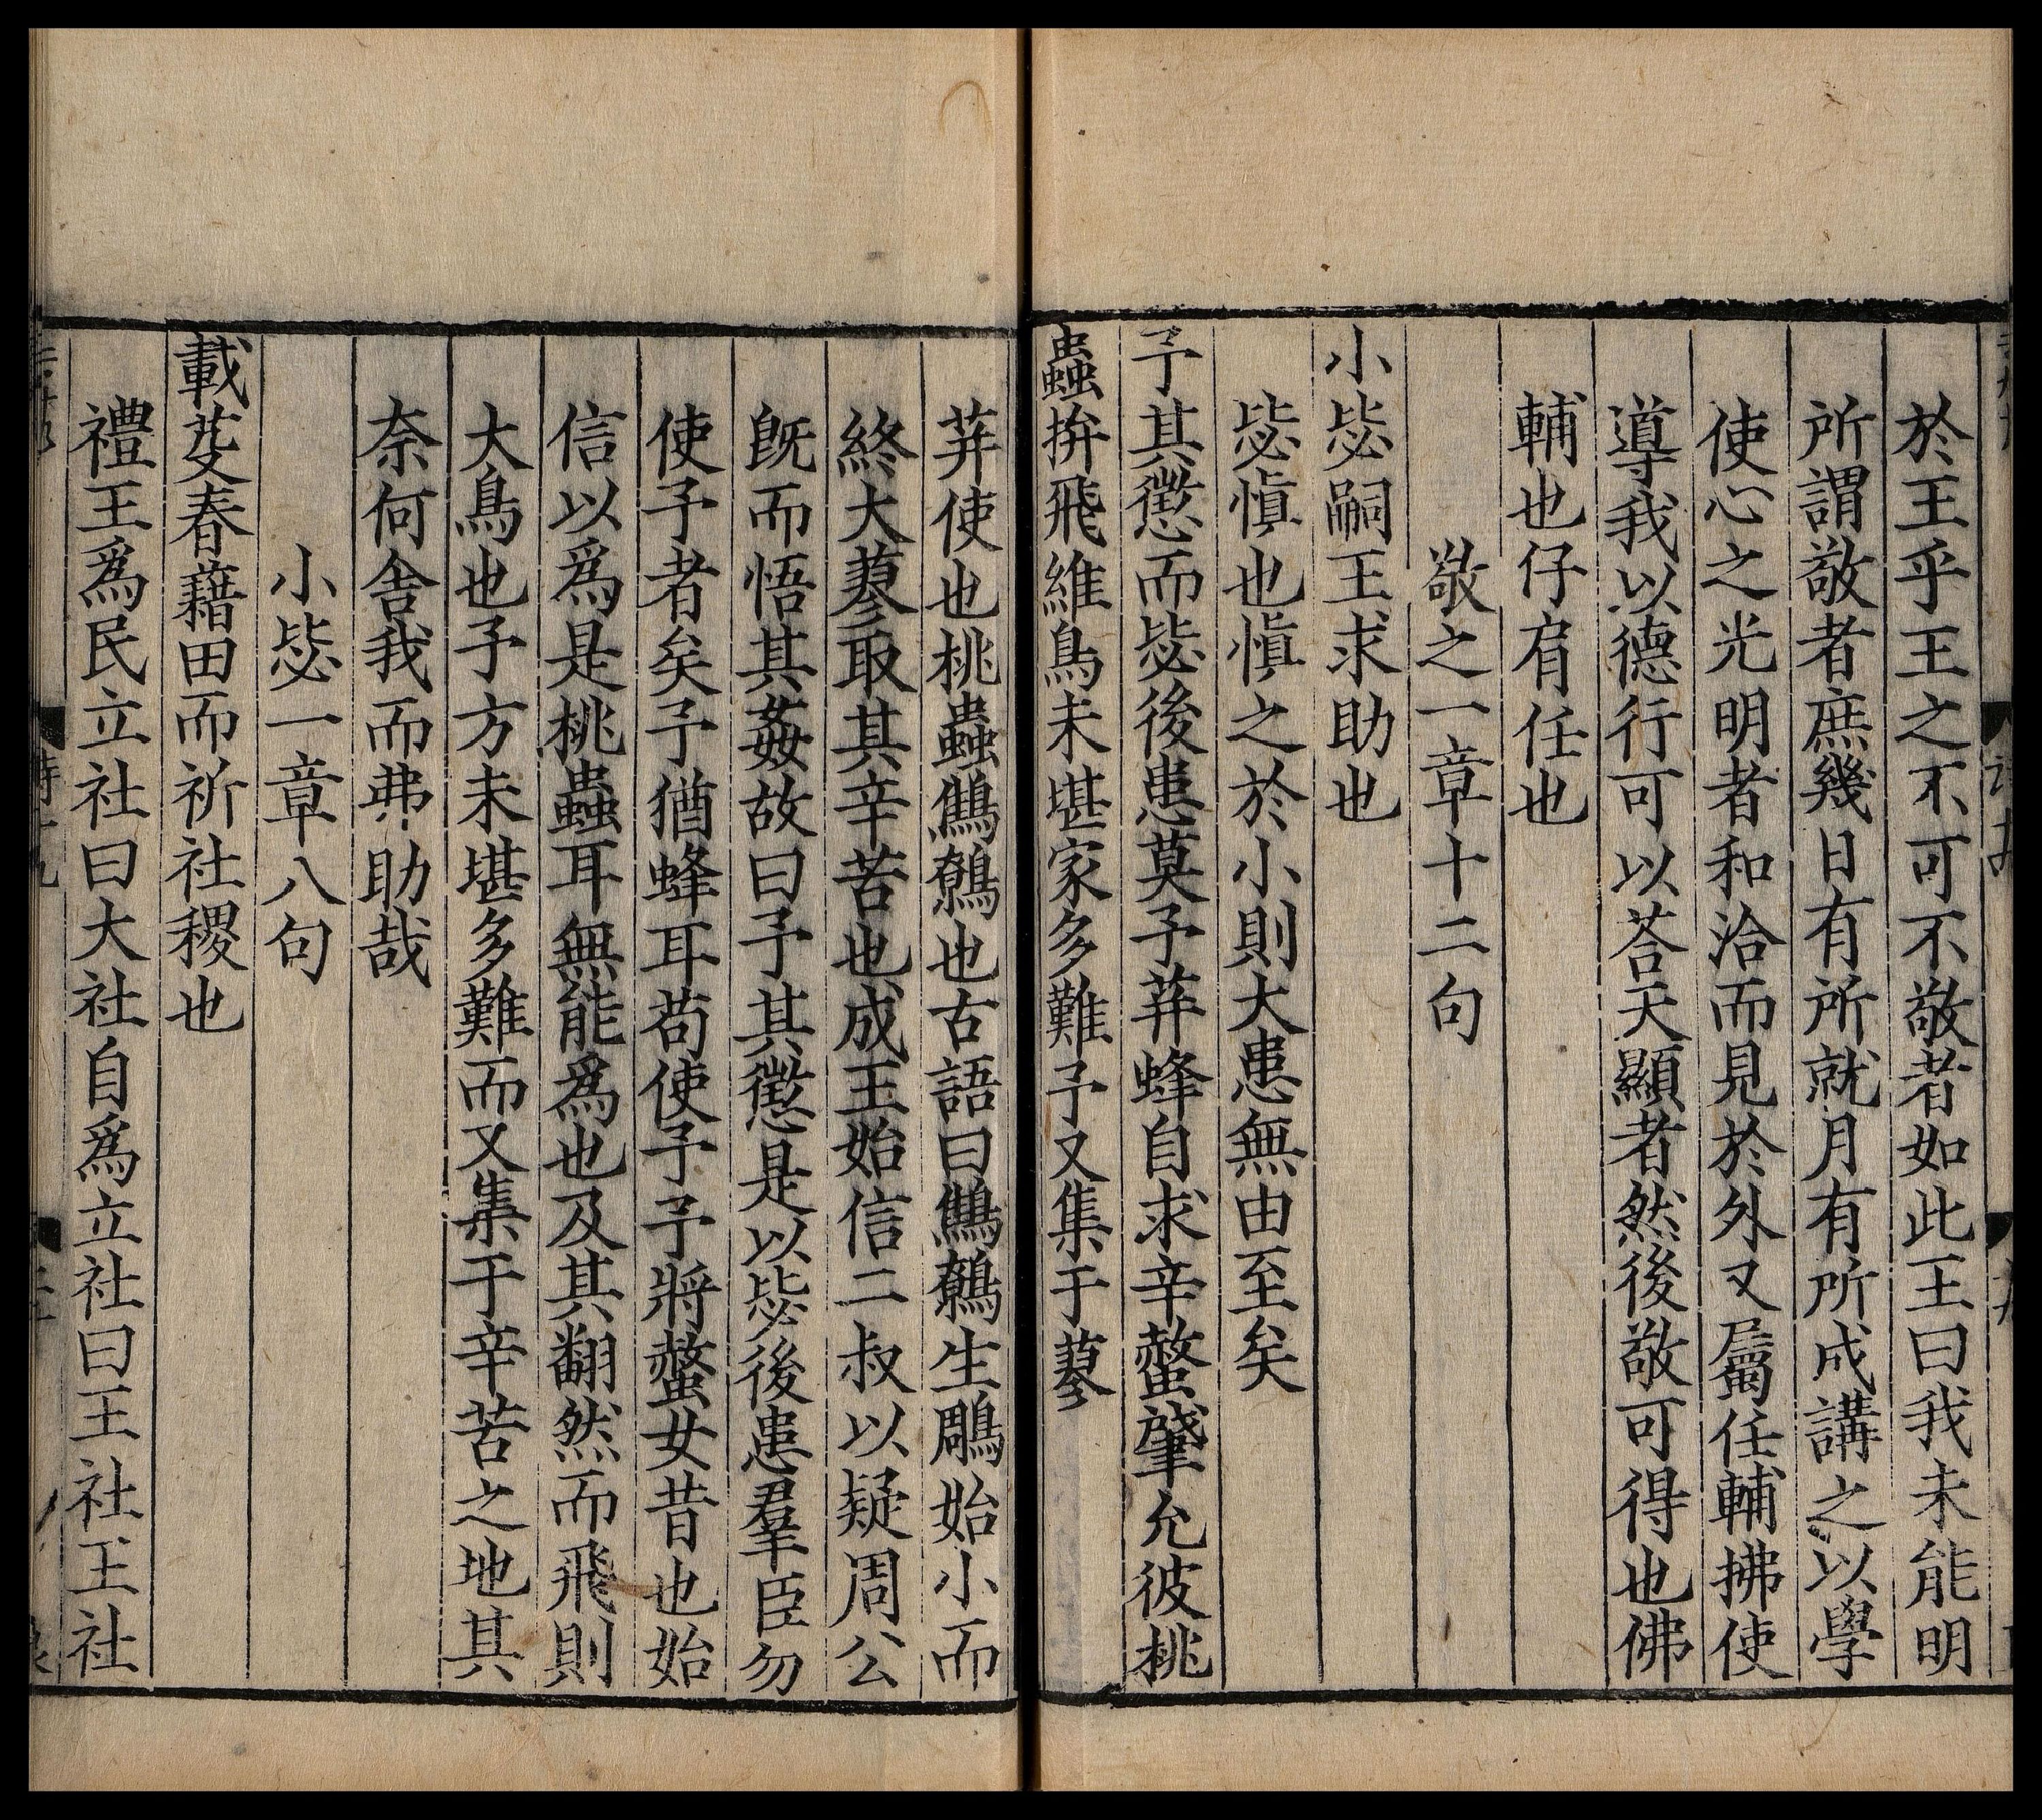 於王乎王之不可不敬者如此王曰我未能明
所謂敬者庶幾日有所就月有所成講之以學
使心之光明者和洽而見於外又屬任輔拂使
導我以德行可以荅天顯者然後敬可得也佛
輔也仔肩任也
敬之一章十二句
小毖嗣王求助也
毖愼也愼之於小則大患無由至矣
予其懲而毖後患莫予荓蜂自求辛螫肇允彼桃
蟲拚飛維鳥未堪家多難予又集于蓼
荓使也桃蟲鷦鷯也古語曰鷦鷯生鵰始小而
終大蓼取其辛苦也成王始信二叔以疑周公
旣而悟其姦故曰予其懲是以毖後患羣臣勿
使予者矣予猶蜂耳苟使予予將螫女昔也始
信以爲是桃蟲耳無能爲也及其翻然而飛則
大鳥也予方未堪多難而又集于辛苦之地其
奈何舍我而弗助哉
小毖一章八句
載芟春藉田而祈社稷也
禮王爲民立社曰大社自爲立社曰王社王社